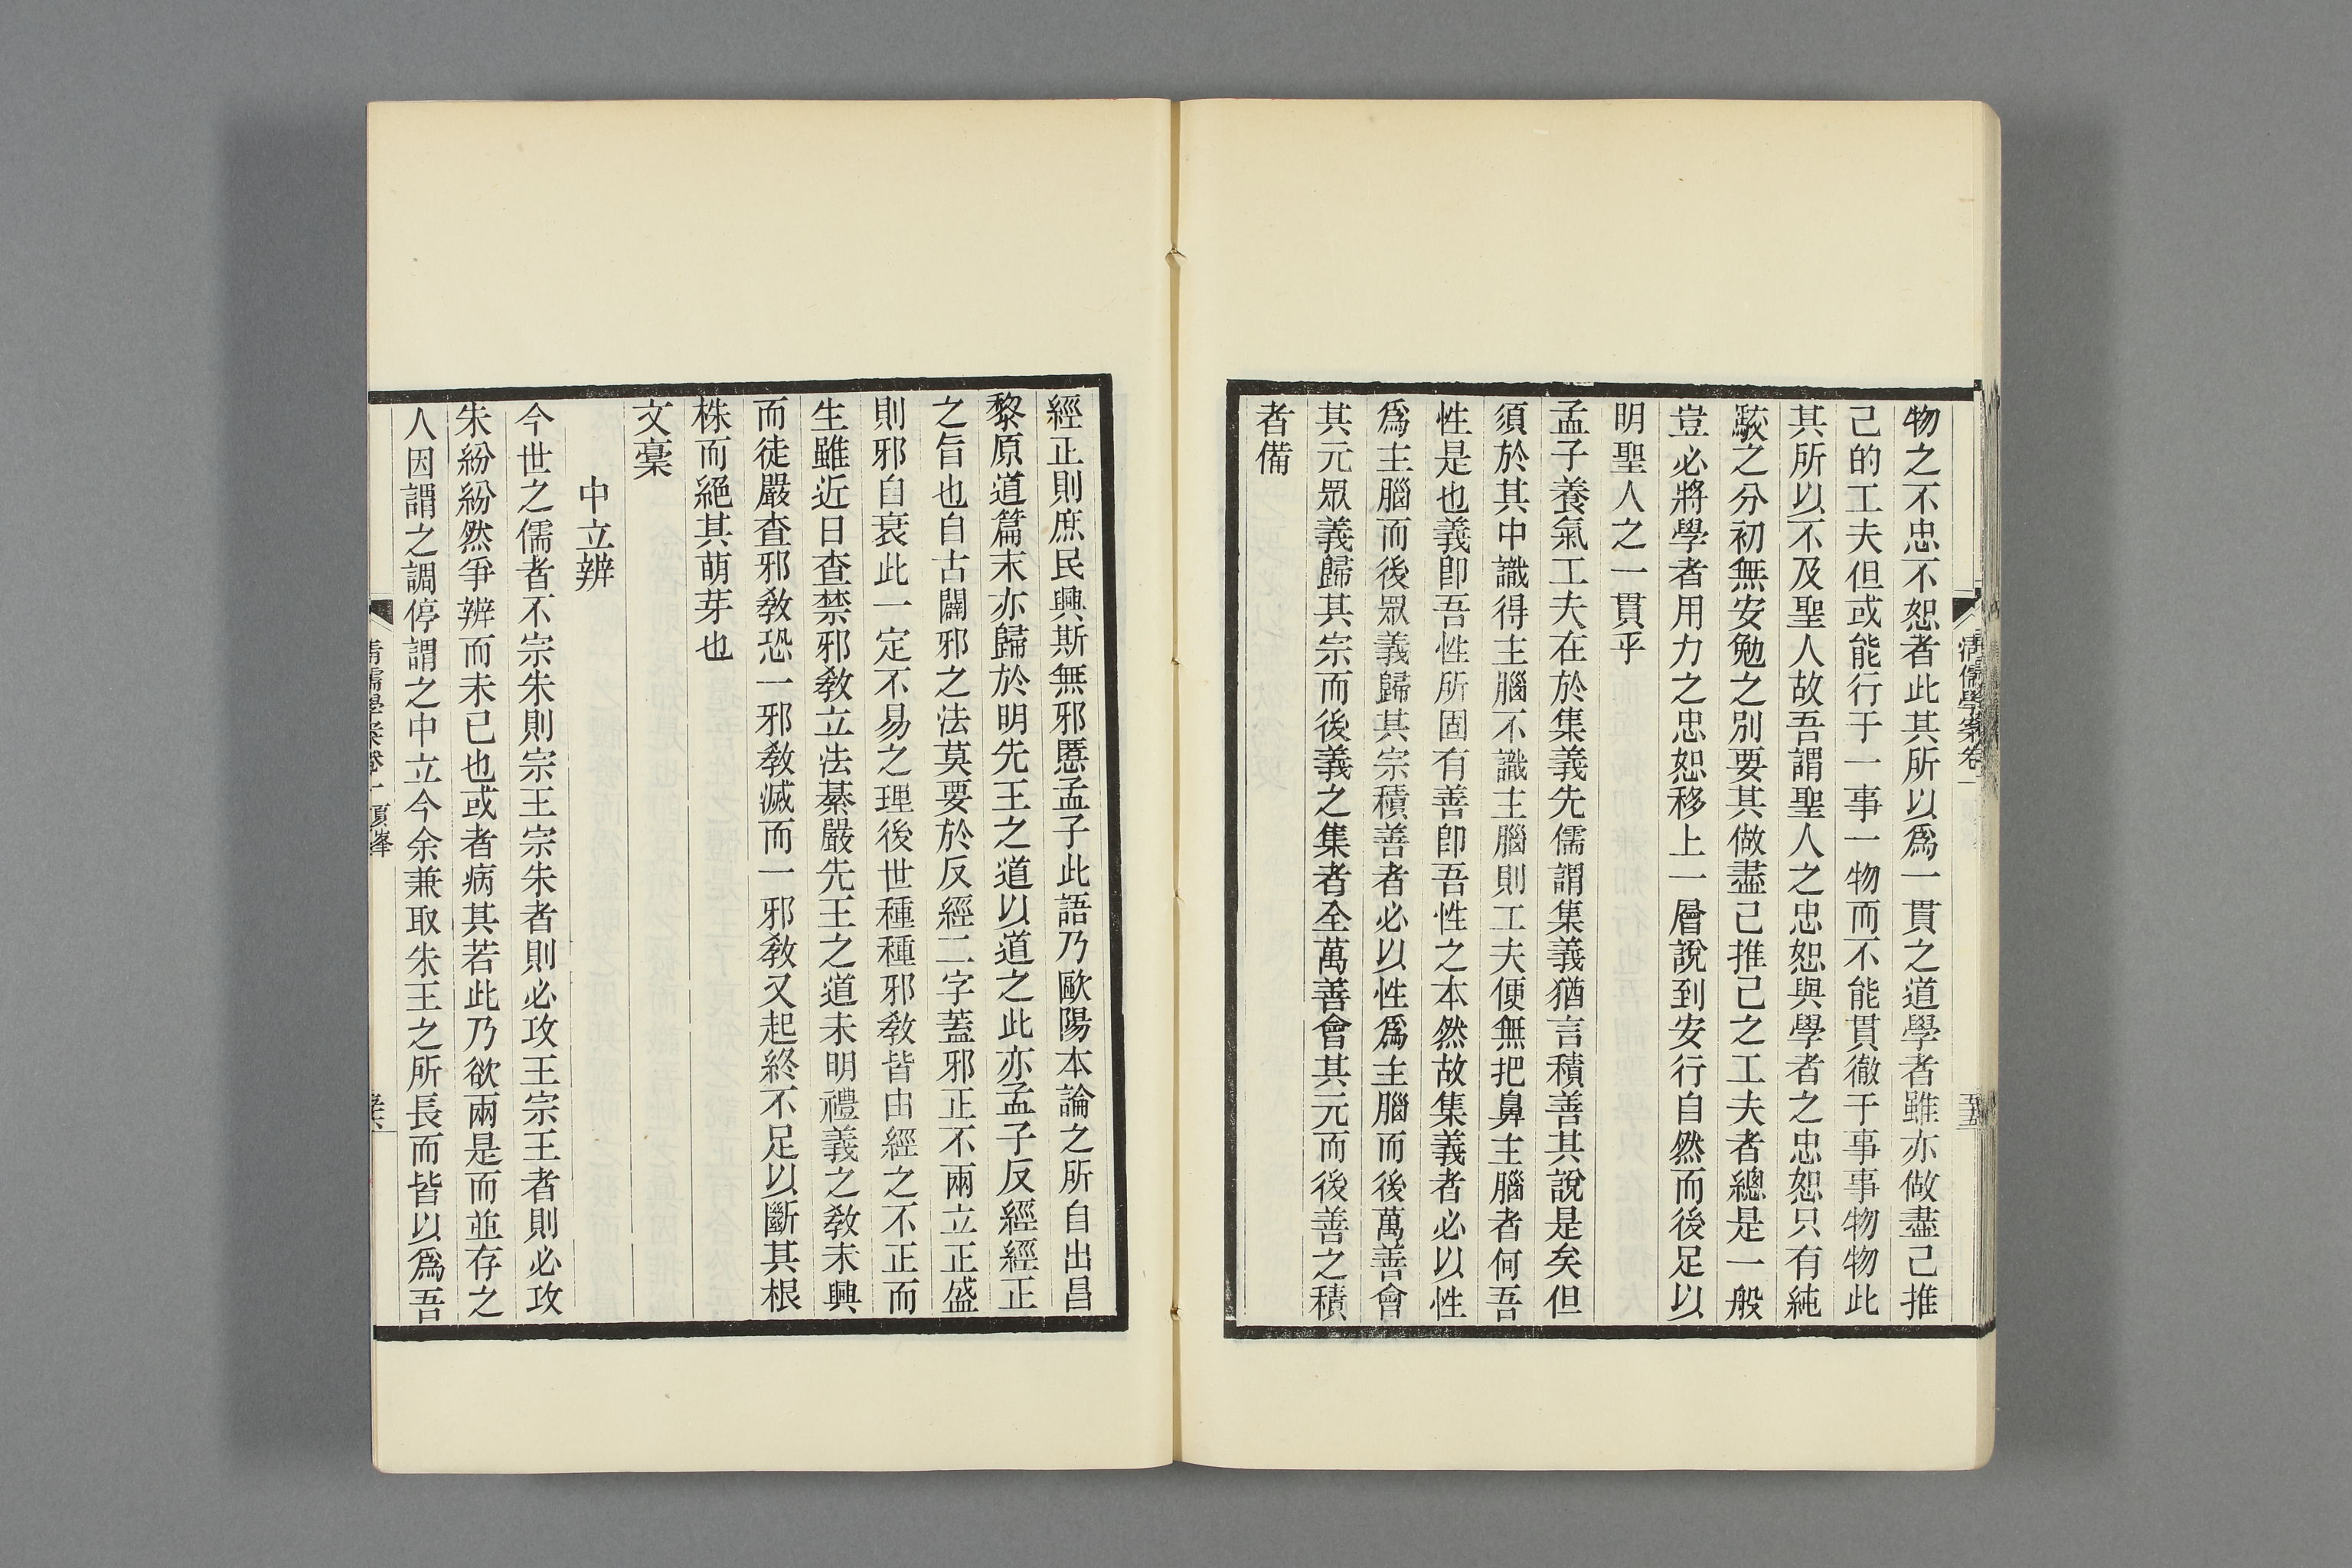 清儒學案卷一
五五
物之不忠不恕者此其所以爲一貫之道學者雖亦做盡己推
己的工夫但或能行于一事一物而不能貫徹于事事物物此
其所以不及聖人故吾謂聖人之忠恕與學者之忠恕只有純
駮之分初無安勉之別要其做盡己推己之工夫者總是一般
豈必將學者用力之忠恕移上一層說到安行自然而後足以
明聖人之一貫乎
孟子養氣工夫在於集義先儒謂集義猶言積善其說是矣但
須於其中識得主腦不識主腦則工夫便無把鼻主腦者何吾
性是也義卽吾性所固有善卽吾性之本然故集義者必以性
爲主腦而後眾義歸其宗積善者必以性爲主腦而後萬善會
其元眾義歸其宗而後義之集者全萬善會其元而後善之積
者備
經正則庶民興斯無邪慝孟子此語乃歐陽本論之所自出昌
黎原道篇末亦歸於明先王之道以道之此亦孟子反經經正
之旨也自古闢邪之法莫要於反經二字蓋邪正不兩立正盛
則邪自衰此一定不易之理後世種種邪敎皆由經之不正而
生雖近日查禁邪敎立法綦嚴先王之道未明禮義之敎未興
而徒嚴查邪敎恐一邪敎滅而一邪敎又起終不足以斷其根
株而絕其萌芽也
文稾
中立辨
今世之儒者不宗朱則宗王宗朱者則必攻王宗王者則必攻
朱紛紛然爭辨而未已也或者病其若此乃欲兩是而並存之
人因謂之調停謂之中立今余兼取朱王之所長而皆以爲吾
清儒學案卷一 夏峰